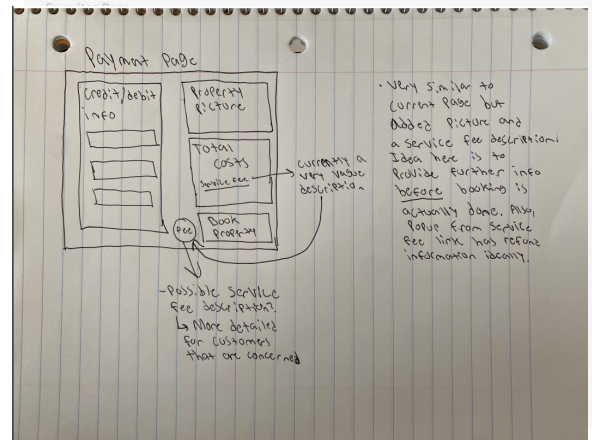 Payment Page
Credit/debit
info
Property
Picture
Total
Costs
Service fee
Book
Property
Fee
currently a
very vague
description
- Possible Service
fee description?
↳ More detailed
for customers
that are concerned
• Very similar to
current Page but
Added Picture and
a service fee description.
Idea here is to
Provide further info
before booking is
actually done. Also,
Popup from service
fee link has refund
information ideally.